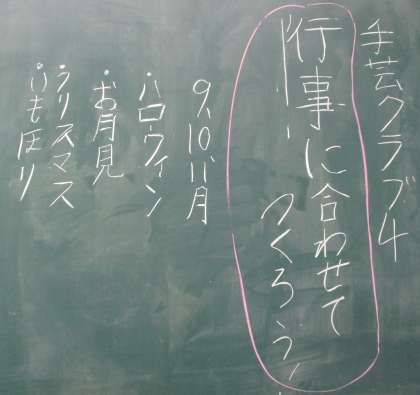 手芸クラブ4
行事に合わせて
つくろう!
9、10、11、月
・ハロウィン
・お月見
・クリスマス
・いもほり